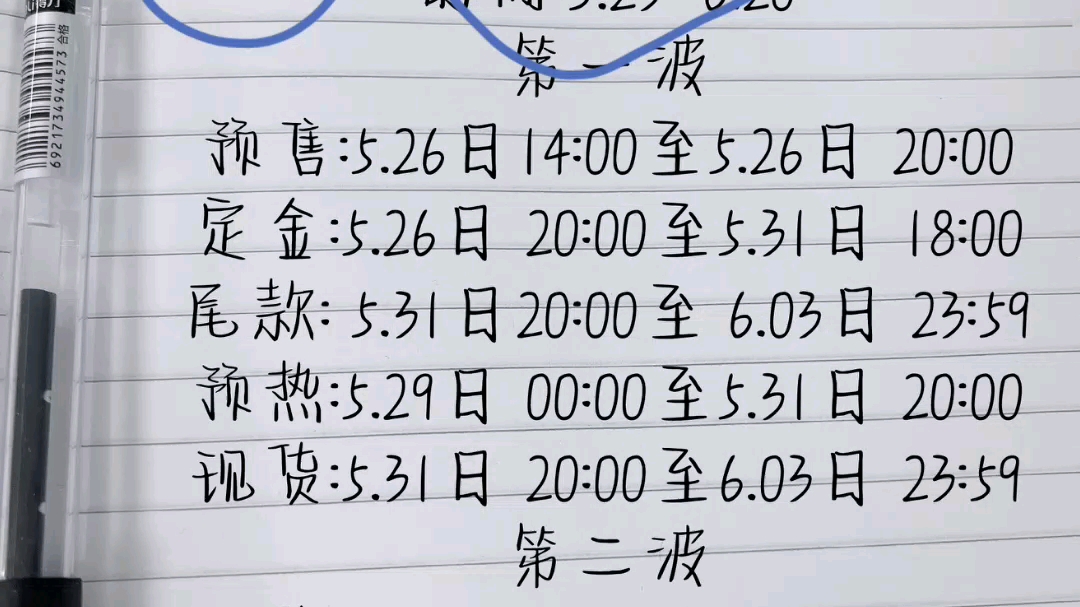 第一波
预售:5.26日14:00至5.26日 20:00
定金:5.26日 20:00至5.31日 18:00
尾款:5.31日20:00至 6.03日 23:59
预热:5.29日 00:00至5.31日 20:00
现货:5.31日 20:00至6.03日 23:59
第二波
6921734944573 合格